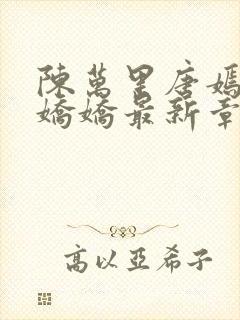 陳萬里唐嫣
嬌嬌最新章
高以亞希子